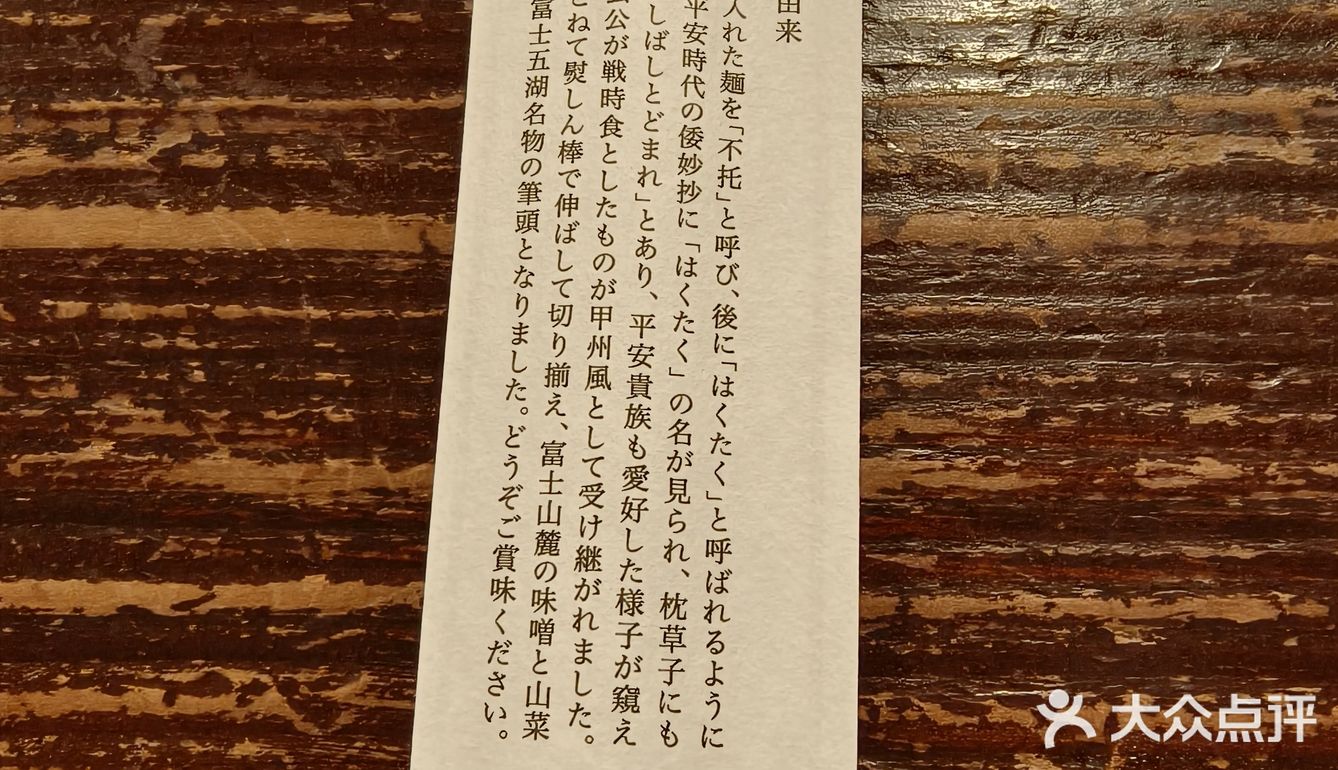 由来
入れた麺を「不托」と呼び、後に「はくたく」と呼ばれるように
平安時代の倭妙抄に「はくたく」の名が見られ、枕草子にも
しばしとどまれ」とあり、平安貴族も愛好した様子が窺え
公が戦時食としたものが甲州風として受け継がれました。
こねて熨しん棒で伸ばして切り揃え、富士山麓の味噌と山菜
富士五湖名物の筆頭となりました。どうぞご賞味ください。
大众点评